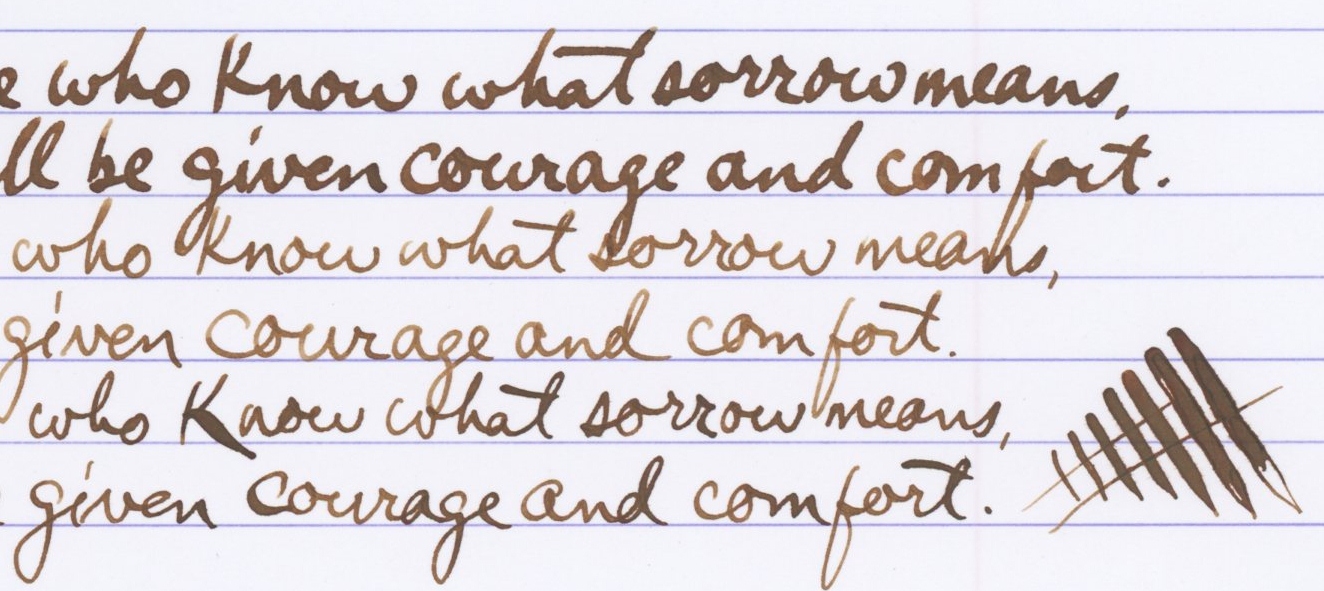 who Know what sorrow means,
be given courage and comfort.
who Know what sorrow means,
given courage and comfort.
who Know what sorrow means,
given courage and comfort.